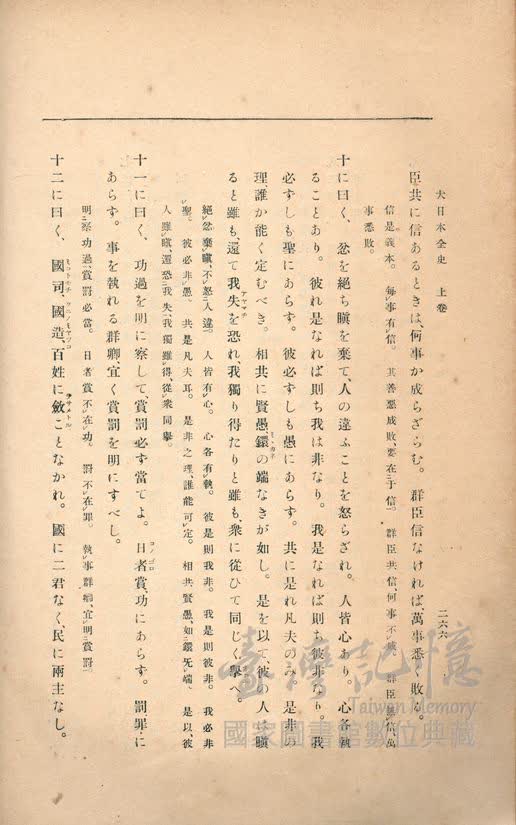 大日本全史　上卷
二六六
臣共に信あるときは、何事か成らざらむ。群臣信なければ、萬事悉く敗る。
信是義本。每事有信。其善惡成敗、要在于信。群臣共信、何事不成、群臣無信、萬
事悉敗。
十に曰く、忿を絕ち瞋を棄て、人の違ふことを怒らざれ。人皆心あり。心各執
ることあり。彼れ是なれば則ち我は非なり。我是なれば則ち彼非なり。我
必ずしも聖にあらず。彼必ずしも愚にあらず。共に是れ凡夫のみ。是非の
理、誰か能く定むべき。相共に賢愚、鐶の端なきが如し。是を以て彼の人は瞋
ると雖も、還て我失を恐れ、我獨り得たりと雖も、衆に從ひて同じく擧へ。
絕忿棄瞋、不怒人違。人皆有心。心各有執。彼是則我非。我是則彼非。我必非
聖。彼必非愚。共是凡夫耳。是非之理、誰能可定。相共賢愚、如鐶无端。是以、彼
人雖瞋、還恐我失、我獨雖得、從衆同擧。
十一に曰く、功過を明に察して賞罰必ず當てよ。日者賞、功にあらず。罰罪に
あらず。事を執れる群卿宜く賞罰を明にすべし。
明察功過、賞罰必當。日者賞不在功。罰不在罪。執事群卿、宜明賞罰
十二に曰く、國司、國造、百姓に斂ことなかれ。國に二君なく、民に兩主なし。
臺灣記憶
Taiwan Memory
國家圖書館數位典藏